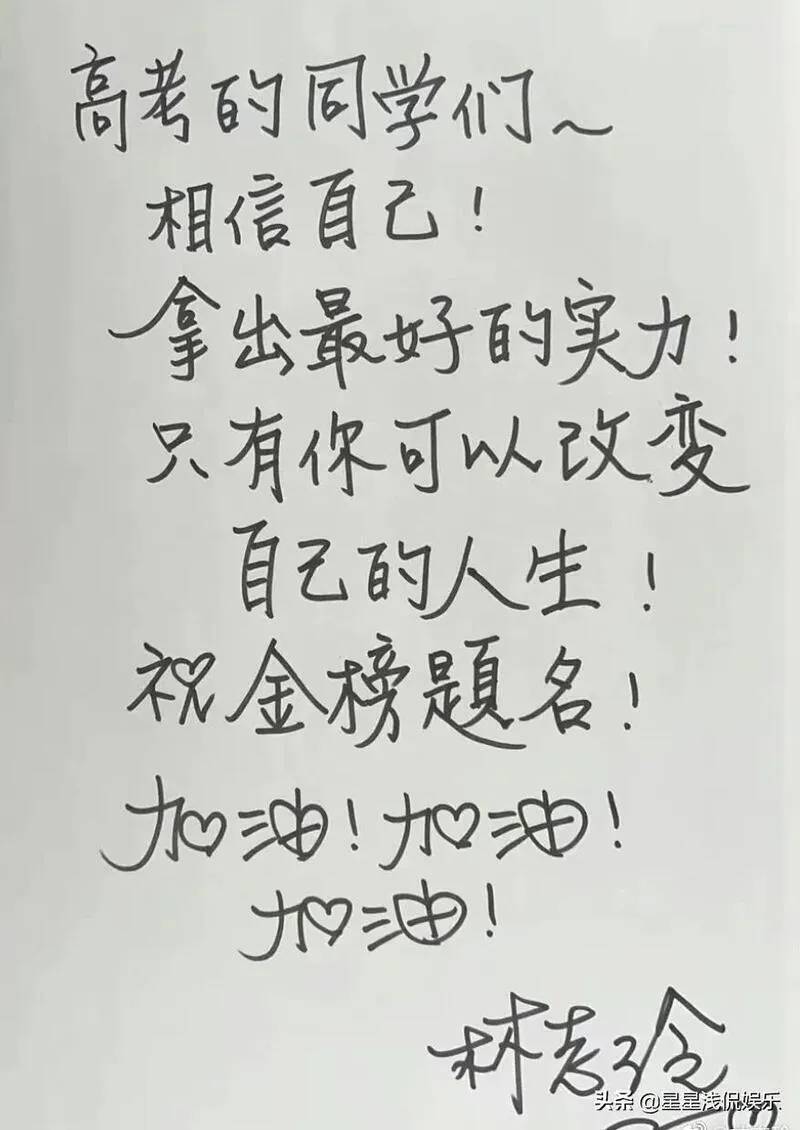 高考的同学们~
相信自己!
拿出最好的实力!
只有你可以改变
自己的人生!
祝金榜题名!
加油!加油!
加油!
林志玲
头条 @星星浅侃娱乐